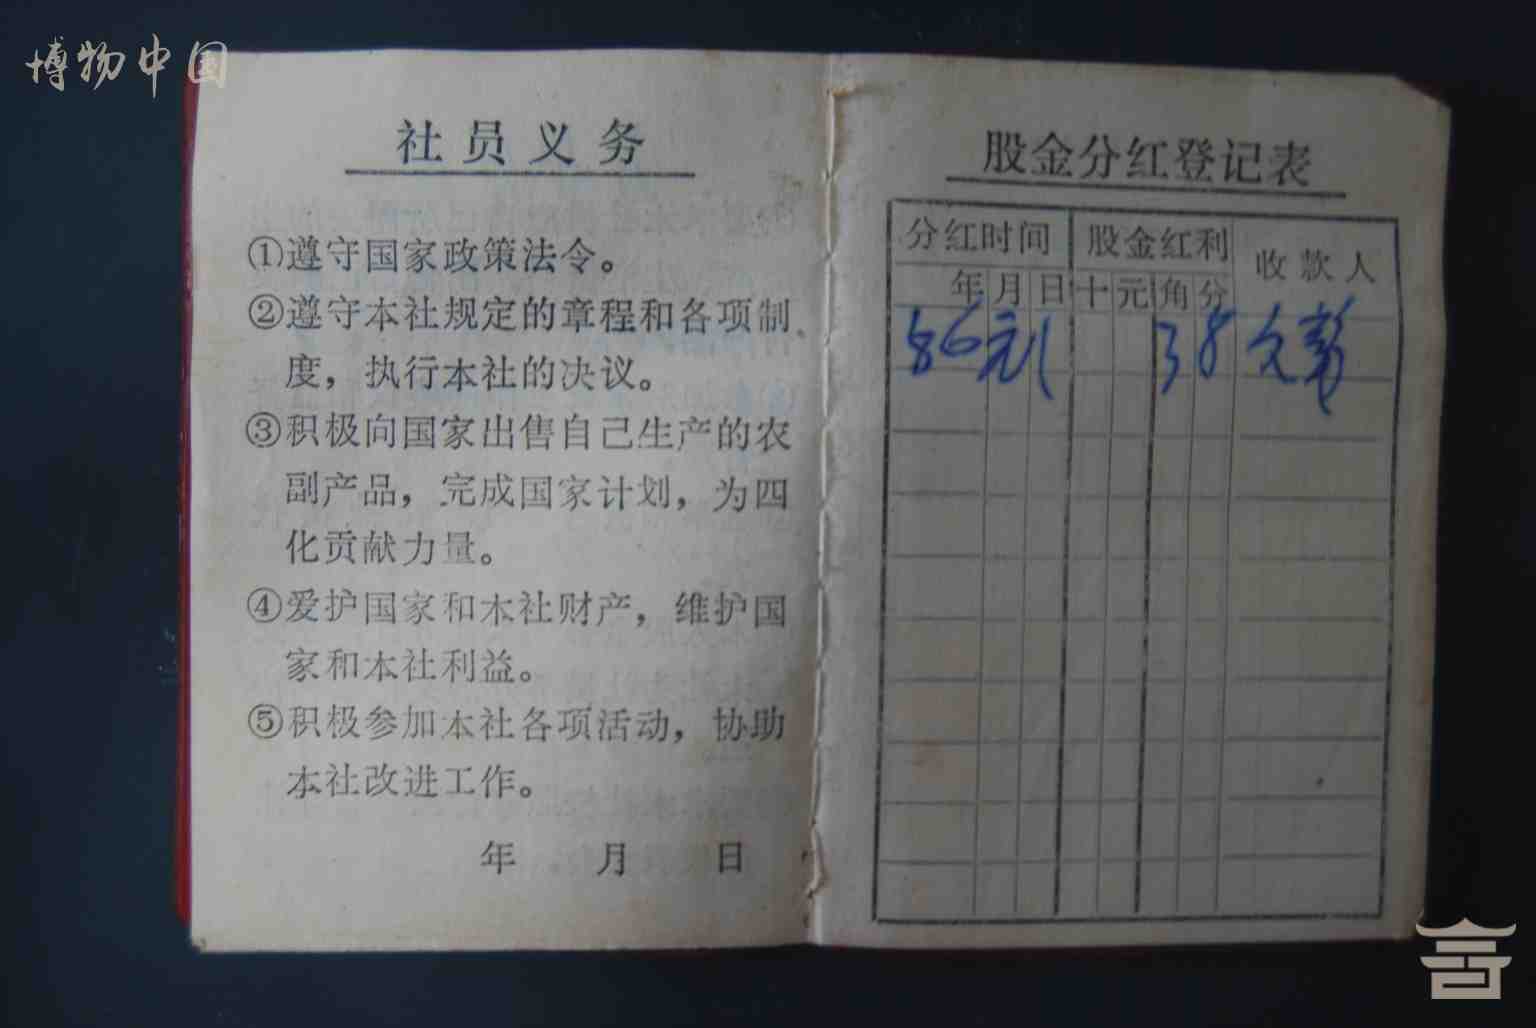 博物中国
社员义务
①遵守国家政策法令。
②遵守本社规定的章程和各项制
度，执行本社的决议。
③积极向国家出售自己生产的农
副产品，完成国家计划，为四
化贡献力量。
④爱护国家和本社财产，维护国
家和本社利益。
⑤积极参加本社各项活动，协助
本社改进工作。
年 月 日
股金分红登记表
分红时间 股金红利 收款人
年 月 日 十 元 角 分
86 元 1 3 8